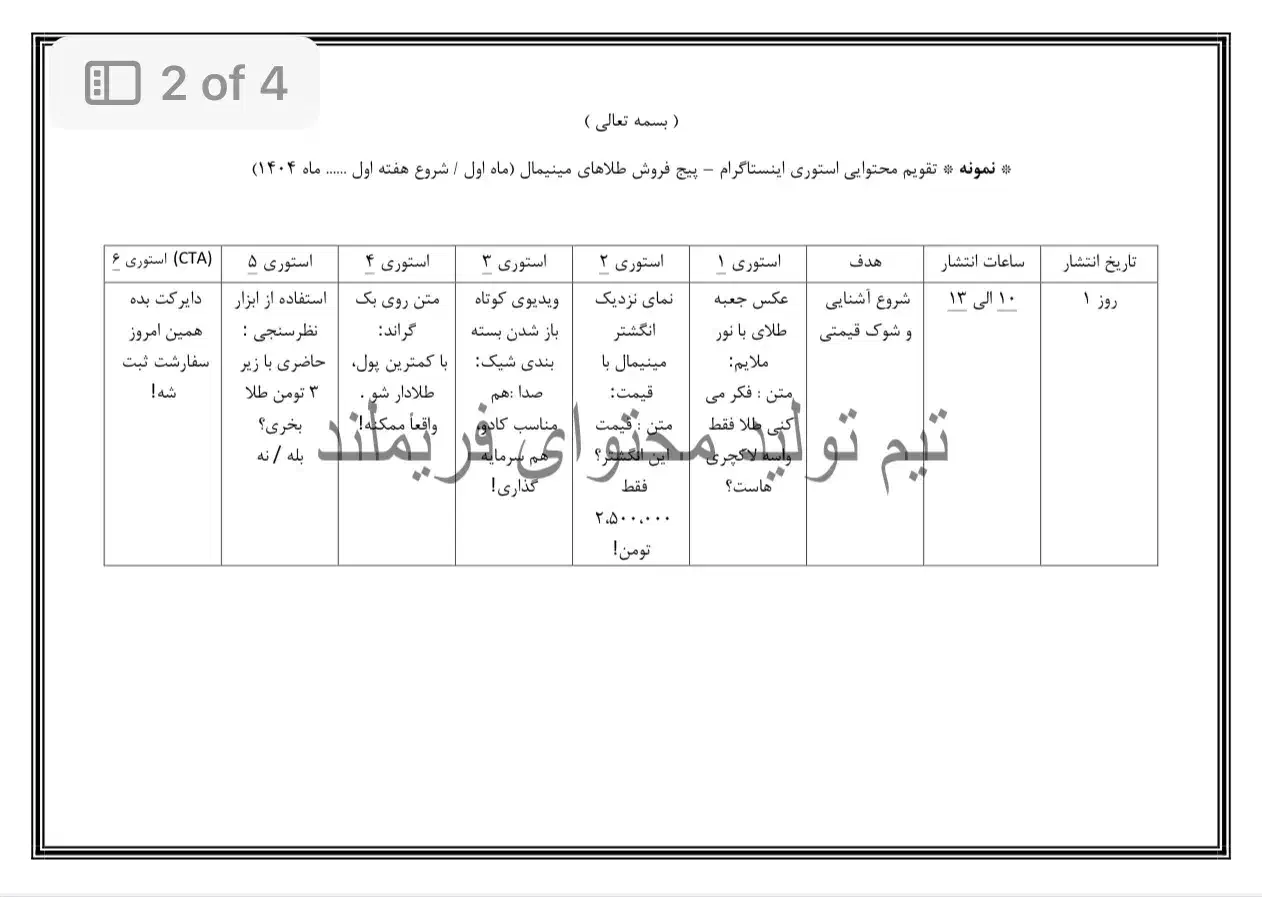 2 of 4
( بسمه تعالی )
* نمونه * تقویم محتوایی استوری اینستاگرام – پیج فروش طلاهای مینیمال (ماه اول / شروع هفته اول ...... ماه ۱۴۰۴)
تاریخ انتشار
ساعات انتشار
هدف
استوری ۱
استوری ۲
استوری ۳
استوری ۴
استوری ۵
استوری ۶ (CTA)
روز ۱
۱۰ الی ۱۳
شروع آشنایی
و شوک قیمتی
عکس جعبه
طلای با نور
ملایم:
متن : فکر می
کنی طلا فقط
واسه لاکچری
هاست؟
نمای نزدیک
انگشتر
مینیمال با
قیمت:
متن : قیمت
این انگشتر؟
فقط
۲،۵۰۰،۰۰۰
تومن!
ویدیوی کوتاه
باز شدن بسته
بندی شیک:
صدا :هم
مناسب کادو،
هم سرمایه
گذاری!
متن روی بک
گراند:
با کمترین پول،
طلادار شو .
واقعاً ممکنه!
استفاده از ابزار
نظرسنجی :
حاضری با زیر
۳ تومن طلا
بخری؟
بله / نه
دایرکت بده
همین امروز
سفارشت ثبت
شه!
تیم تولید محتوای فریماند